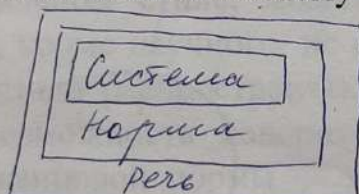 Система
Норма
Речь